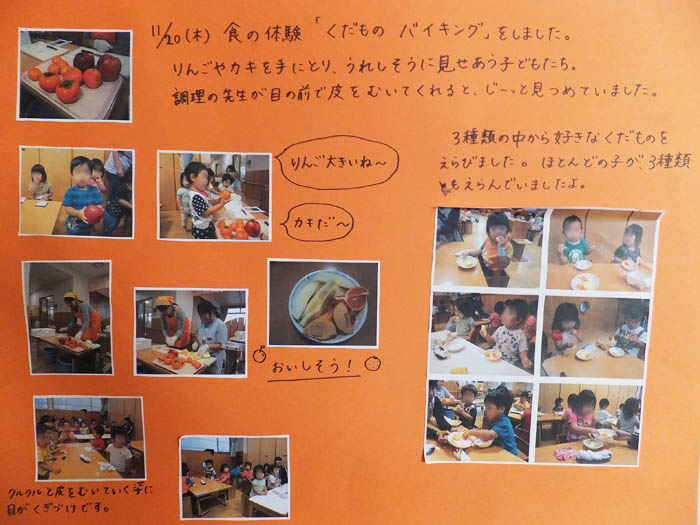 11/20(木) 食の体験「くだもの バイキング」をしました。
りんごやカキを手にとり、うれしそうに見せあう子どもたち。
調理の先生が目の前で皮をむいてくれると、じーっと見つめていました。
りんご大きいね〜
カキだ〜
3種類の中から好きなくだものを
えらびました。ほとんどの子が、3種類
もえらんでいましたよ。
おいしそう!
クルクルと皮をむいていく姿に
目がくぎづけです。